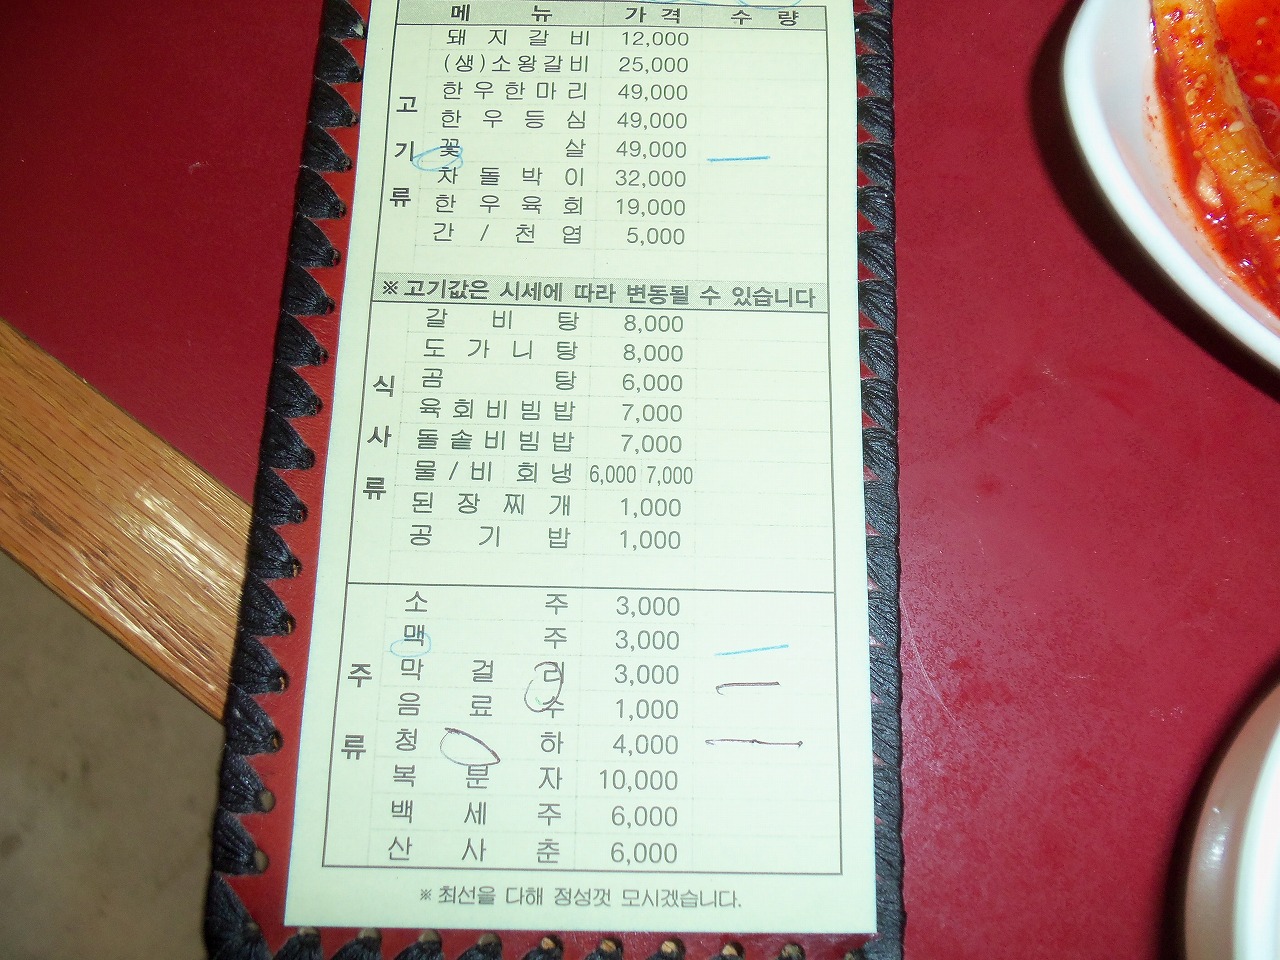 메 뉴 가 격 수 량
돼 지 갈 비 12,000
(생)소왕갈비 25,000
한우한마리 49,000
한 우 등 심 49,000
꽃 살 49,000
차 돌 박 이 32,000
한 우 육 회 19,000
간 / 천 엽 5,000
고 기 류
※고기값은 시세에 따라 변동될 수 있습니다
갈 비 탕 8,000
도 가 니 탕 8,000
곰 탕 6,000
육회비빔밥 7,000
돌솥비빔밥 7,000
물/비 회냉 6,000 7,000
된 장 찌 개 1,000
공 기 밥 1,000
식 사 류
소 주 3,000
맥 주 3,000
막 걸 리 3,000
음 료 수 1,000
청 하 4,000
복 분 자 10,000
백 세 주 6,000
산 사 춘 6,000
주 류
※ 최선을 다해 정성껏 모시겠습니다.